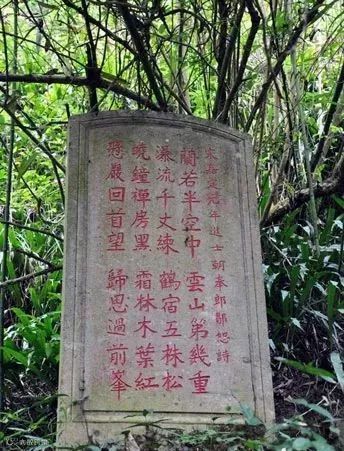 宋嘉定年進士朝奉郎鄭恕詩
蘭若半空中 雲山第幾重
瀑流千丈練 鶴宿五株松
曉鐘禪房黑 霜林木葉紅
嚴回首望 歸思過前峯